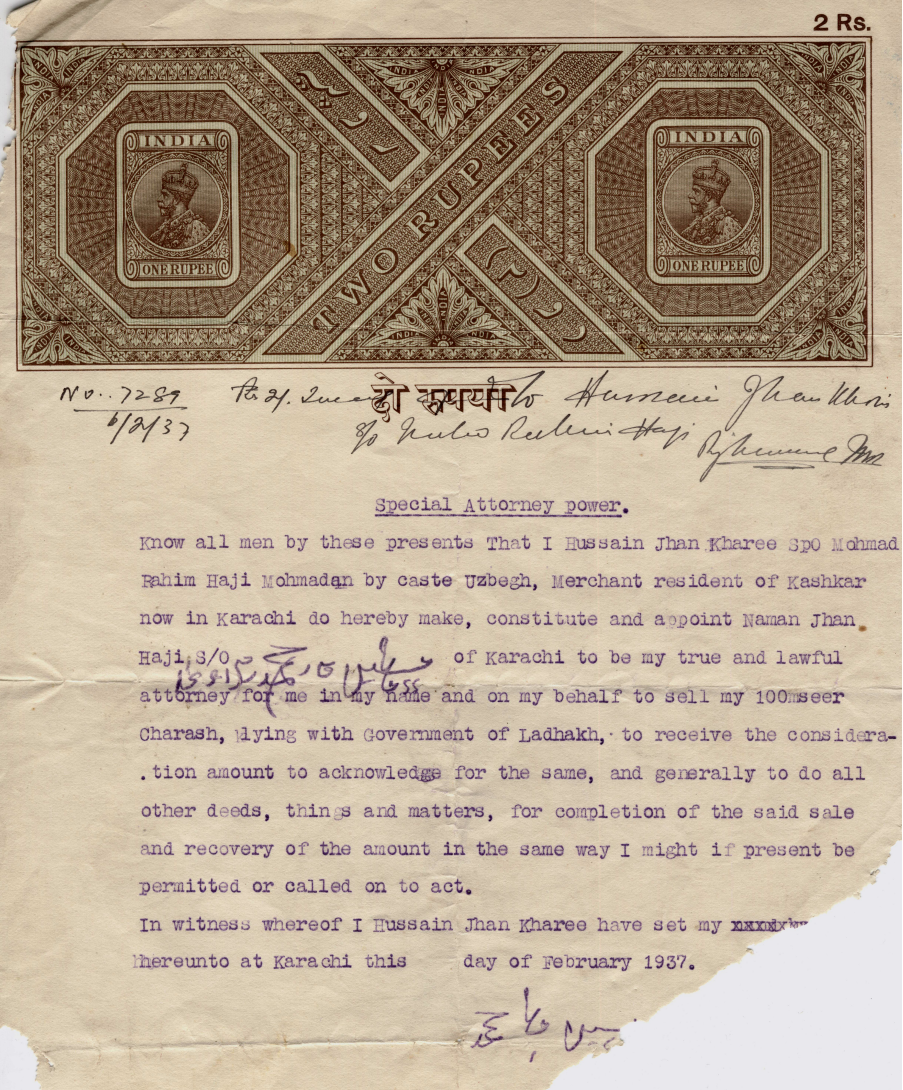 2 Rs.
INDIA
ONE RUPEE
دو روپیہ
TWO RUPEES
INDIA
ONE RUPEE
दो रुपया
No. 7289
6/2/37
to Hussain Jhan Khari
S/o Rahim Haji
Special Attorney power.
Know all men by these presents That I Hussain Jhan Kharee SpO Mohmad
Rahim Haji Mohmadan by caste Uzbegh, Merchant resident of Kashkar
now in Karachi do hereby make, constitute and appoint Naman Jhan
Haji S/O of Karachi to be my true and lawful
attorney for me in my name and on my behalf to sell my 100mseer
Charash, lying with Government of Ladhakh, to receive the considera-
.tion amount to acknowledge for the same, and generally to do all
other deeds, things and matters, for completion of the said sale
and recovery of the amount in the same way I might if present be
permitted or called on to act.
In witness whereof I Hussain Jhan Kharee have set my
hereunto at Karachi this day of February 1937.